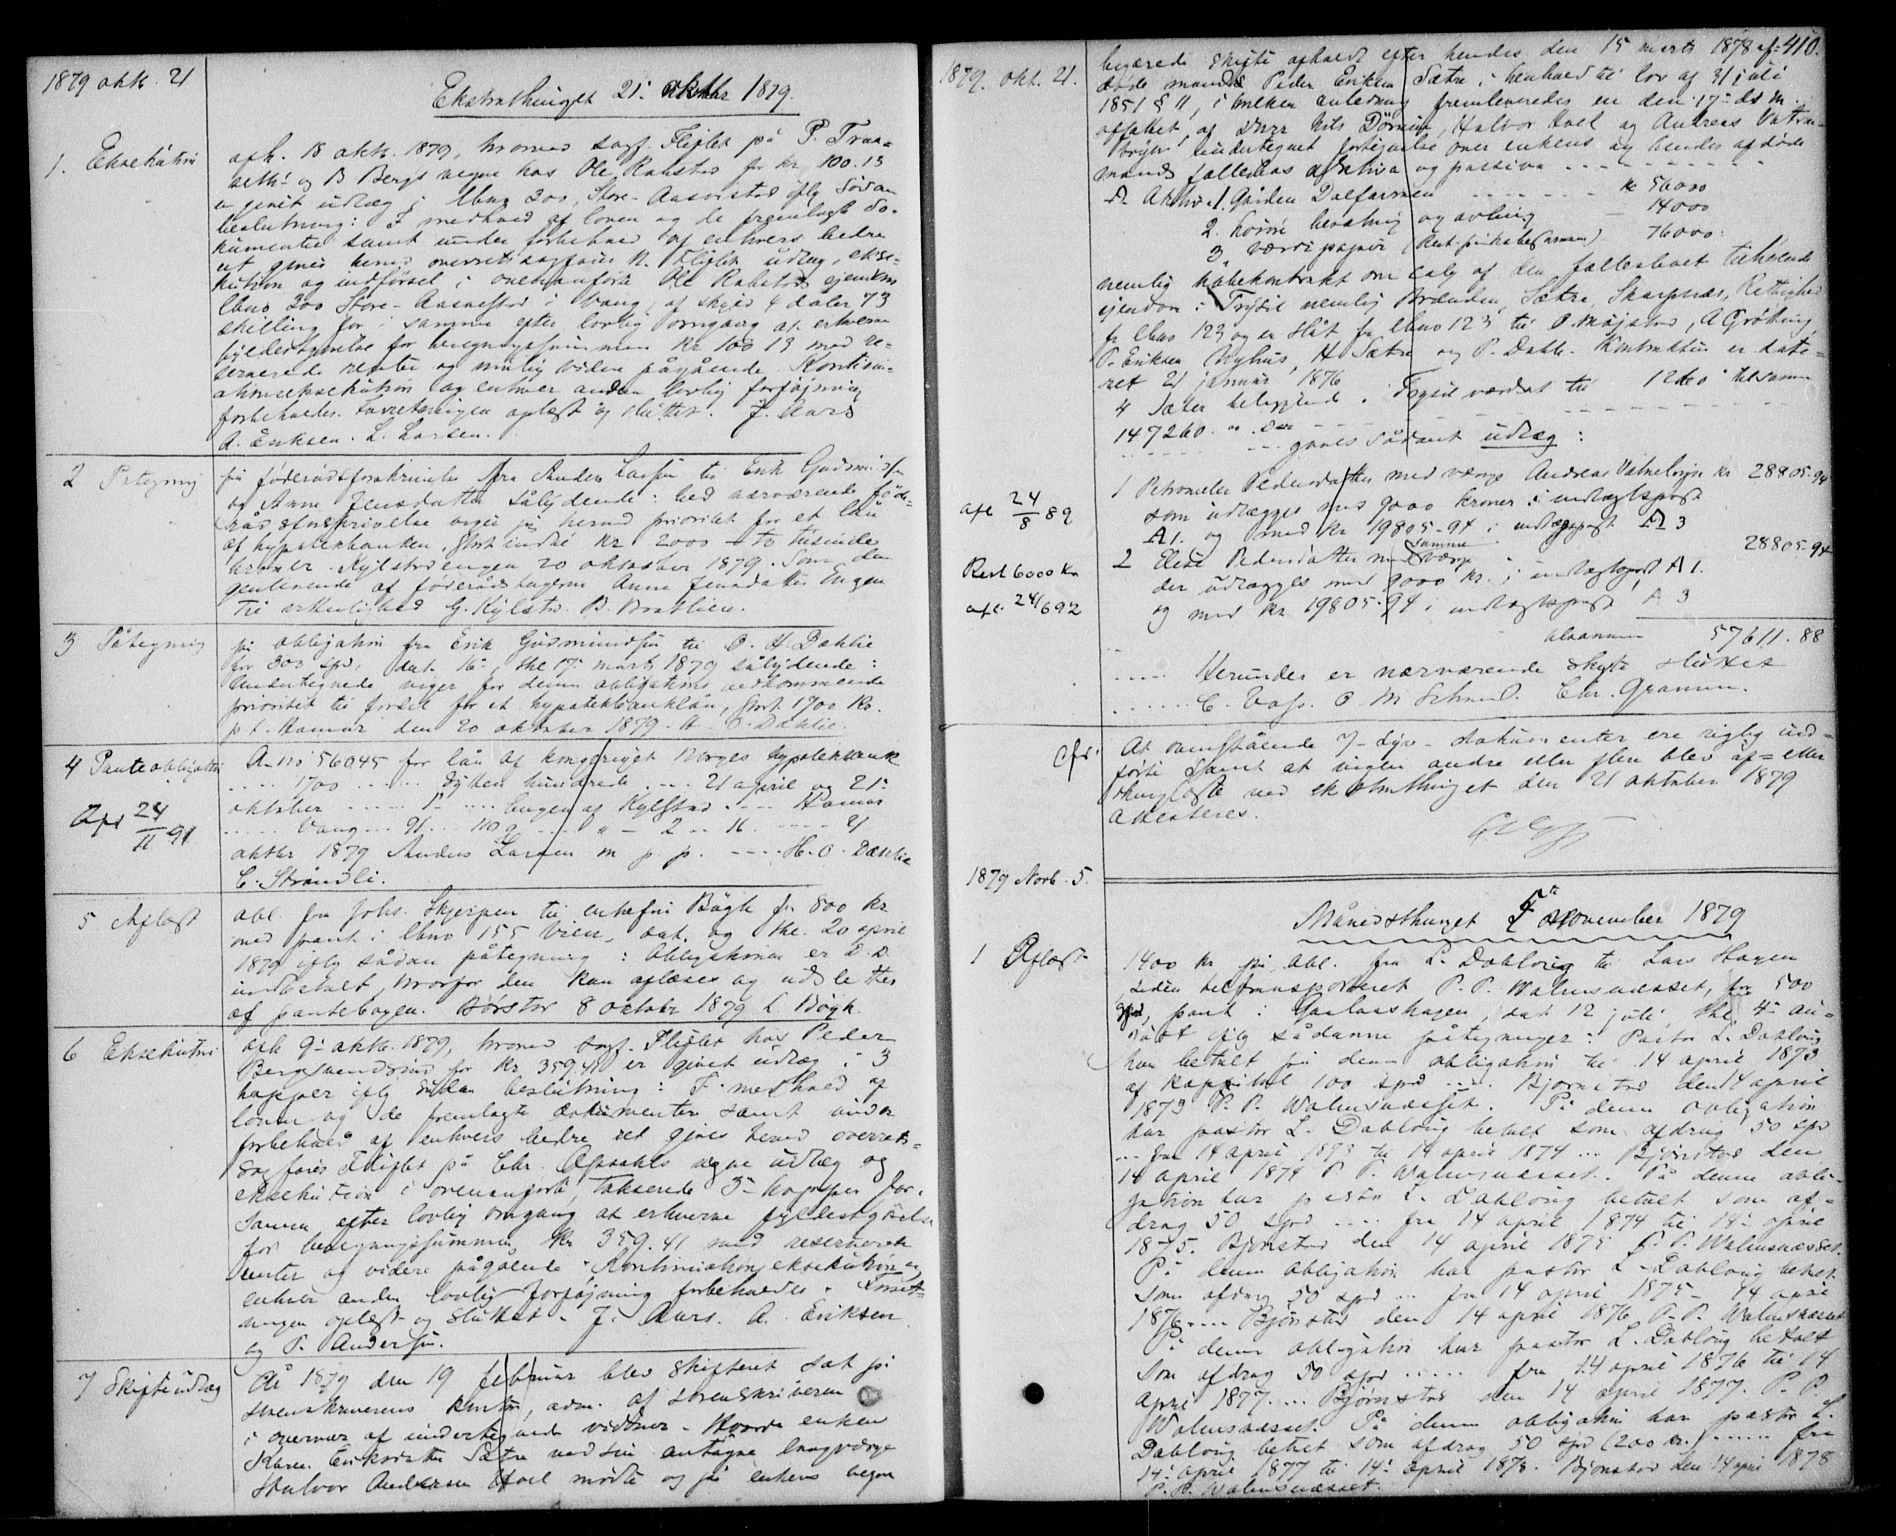 1879 oktb. 21
Ekstrathinget 21: oktbr 1879.
1. Eksekution
afh. 18 oktb. 1879, hvorved sagf. Fliflet på P. Traa-
og B Bergs vegne hos Ole Rakstad for kr. 100.13
er givet udlæg i lbno 300, Store-Aasvestad iflg sådan
beslutning: I medhold af loven og de fremlagte do-
kumenter samt under forbehold af enhvers bedre
ret gives herved overretssagfører N. Fliflet udlæg, ekse-
kution og indförsel i ovenanførte Ole Rakstads ejendom
lbno 300 Store-Aasvestad i Vang, af skyld 4 daler 73
skilling for i samme efter lovlig omgang at erhverve
fyldestgjørelse for beløgningssummen kr 100 13 med re-
serverede renter og mulig videre pågående. Kontinu-
ationseksekution og enhver anden lovlig forføjning
forbeholdes. Forretningen oplæst og sluttet. J. Aars
A. Eriksen. L. Larsen.
2 Påtegning
på föderådsforskrivelse fra Anders Larsen til Erik Gudmundsen
og Anne Jensdatter sålydende: Ved nærværende föde-
rådsforskrivelse viger jeg herved prioritet for et lån
af hypotekbanken, stort indtil kr 2000 - to tusinde
kroner. Kylstadengen 20 oktober 1879. Som den
gjenlevende af föderådstagerne Anne Jensdatter Engen
Til vitterlighed G. Kylstad. B. Bratlien.
3 Påtegning
på obligation fra Erik Gudmundsen til O. H. Dahlie
for 300 spd, dat. 16-, thl 17- marts 1879 sålydende:
Undertegnede viger for denne obligations vedkommende
prioritet til fordel for et hypotekbanklån, stort 1700 kr.
p t. Hamar den 20 oktober 1879. H. O. Dahlie.
4 Panteobligation
A - no 56045 for lån af kongeriget Norges hypotekbank
.... 1700 ..... sytten hundrede .... 21 april og 21:
oktober ..... 1- .... Engen af Kylstad .... Hamar
..... Vang ... 91 ... 110 g .... " - 2 .. 16 ..... 21
oktbr 1879 Anders Larsen m. p. p. .... H. O. Dæhlie
C. Strandli.
Afl 24/11 91
5 Aflæst
obl. fra Johs. Skjerpen til enkefru Bögh for 800 kr
med pant i lbno 155 Vien, dat. og thl. 20 april
1879 iflg sådan påtegning: Obligationen er D. D.
indbetalt, hvorfor den kan aflæses og udslettes
af pantebogen. Börstad 8 octobr 1879 C Bögh.
6 Eksekution
afh 9- oktb. 1879, hvorved sagf. Fliflet hos Peder
Bergsvendsen for kr 359.41 er givet udlæg i 3
hopper iflg sådan beslutning: I medhold af
loven og de fremlagte dokumenter samt under
forbehold af enhvers bedre ret gives herved overrets-
sagfører Fliflet på Chr. Opsahls vegne udlæg og
eksekution i ovenanførte, takserede 3- hopper for i
samme efter lovlig omgang at erhverve fyldestgörelse
for beløgningssummen kr 359.41 med reserverede
renter og videre pågående. Kontinuationseksekution og
enhver anden lovlig forføjning forbeholdes. Forret-
ningen oplæst og sluttet. J. Aars. A. Eriksen
og P. Andersen.
7 Skifteudlæg
År 1879 den 19 februar blev skifteret sat på
sorenskriverens kontor, adm. af sorenskriveren
i overvær af undertegnede vidner. Hvorda enken
Karen Eriksdatter Sætre ved sin antagne lavgværge
Halvor Andersen Hoel mødte og på enkens vegne
1879. okt. 21. 410.
begjærede skifte afholdt efter hendes den 15 marts 1878 af-
døde mand Peder Eriksen Sætre, i henhold til lov af 31 juli
1851 § 11, i hvilken anledning fremleveredes en den 17- ds m.
affattet, af Nils , Halvor Hoel og Andreas
undertegnet fortegnelse over enkens og hendes afdøde
mands fællesbos aktiva og passiva ........
A Aktiva 1. Gården Dalfarmen ........ kr 56000
2. Løsöre besætning og avling - 14000
3. værdipapir (Rest på købesummen) 76000.
nemlig købekontrakt om salg af den fællesboet tilhørende
ejendom i Trysil nemlig Brænden, Sætre, Skarpnæs, Rettighed
fr lbno 123 og en slåt fr lbno 123, til O. Møjstad, A Gröning,
P. Eriksen Nyhus, H Sætre og P. Dahle. Kontrakten er date-
ret 21 januar 1876
4 Sæter beliggende i Trysil værdsat til 1260 tilsamm
147260. ....
.... gives sådant udlæg:
1 Petronelle Pedersdatter med værge Andreas Vatnebryn kr 28805-94
som udlægges med 9000 kroner i indtægtspost
A 1. og med kr 19805-94 i indtægtspost A 3
2 Elise Pedersdatter med samme værge 28805-94
der udlægges med 9000 kr. i indtægtspost A 1.
og med kr 19805-94 i indtægtspost A 3
afl 24/8 89
Rest 6000 kr
afl. 24/6 92
tilsammen 57611.88
..... Herunder er nærværende skifte sluttet
....... C. Vass. O. M. Schne. Chr. Gramm.
Cfr:
At ovenstående 7- syv - dokumenter ere rigtig ud-
førte samt at ingen andre eller flere blev af- eller
thinglæste ved ekstrathinget den 21 oktober 1879
attesteres.
1879 Novb. 5.
Månedsthinget 5te November 1879
1 Aflæst
1400 kr på obl. fra L. Dahloug til Lars Hagen
siden tiltransporteret P. P. Walmsnæsset, for 500
spd, pant i Gaalaashagen, dat 12 juli thl 4- au-
gust iflg sådanne påtegninger: Pastor L. Dahloug
har betalt på denne obligation til 14 april 1873
af kapital 100 spd .... Bjørnstad den 14 april
1873 P. P. Walmsnæsset. På denne obligation
har pastor L. Dahloug betalt som afdrag 50 spd
... fra 14 april 1873 til 14 april 1874 ... Bjørnstad den
14 april 1874 P P. Walmsnæsset. På denne obli-
gation har pastor L. Dahloug betalt som af-
drag 50 spd .... fra 14 april 1874 til 14- april
1875. Bjørnstad den 14 april 1875 P. P. Walmsnæsset.
På denne obligation har pastor L. Dahloug betalt
som afdrag 50 spd ... fra 14 april 1875 - 14 april
1876 .... Bjørnstad den 14 april 1876 P. P. Walmsnæsset
På denne obligation har pastor L. Dahloug betalt
som afdrag 50 spd ..... fra 14 april 1876 til 14
april 1877 .... Bjørnstad den 14 april 1877. P. P.
Walmsnæsset. På denne obligation har pastor L.
Dahloug betalt som afdrag 50 spd (200 kr.) ...... fra
14- april 1877 til 14- april 1878. Bjørnstad den 14 april 1878
P. P. Walmsnæsset.